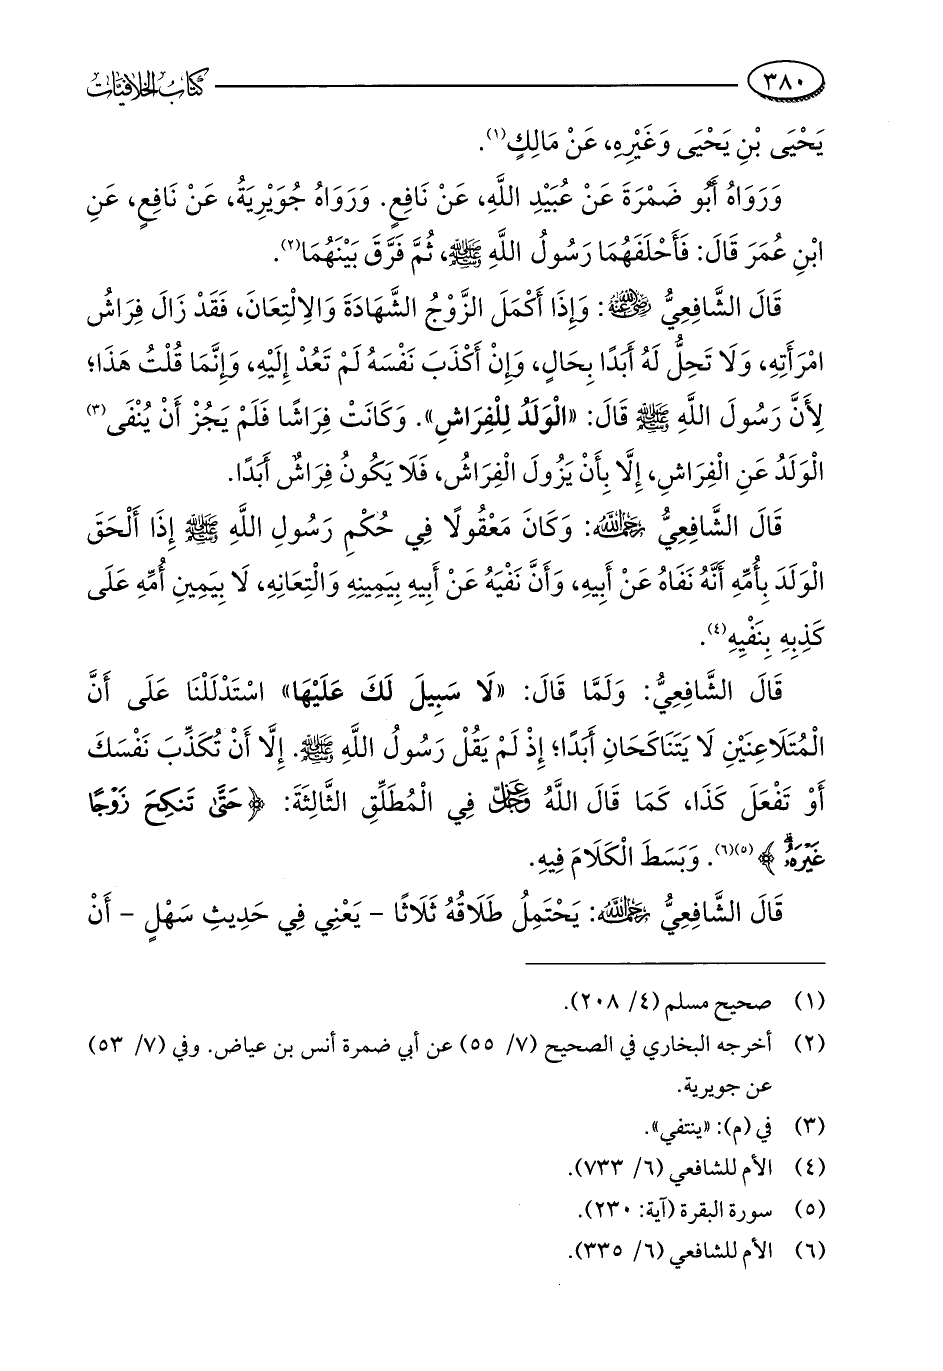 ٣٨٠ كتاب الخلافيات
يَحْيَى بْنِ يَحْيَى وَغَيْرِهِ، عَنْ مَالِكٍ(١).
وَرَوَاهُ أَبُو ضَمْرَةَ عَنْ عُبَيْدِ اللَّهِ، عَنْ نَافِعٍ. وَرَوَاهُ جُوَيْرِيَةُ، عَنْ نَافِعٍ، عَنِ
ابْنِ عُمَرَ قَالَ: فَأَحْلَفَهُمَا رَسُولُ اللَّهِ ﷺ، ثُمَّ فَرَّقَ بَيْنَهُمَا(٢).
قَالَ الشَّافِعِيُّ رضي الله عنه: وَإِذَا أَكْمَلَ الزَّوْجُ الشَّهَادَةَ وَالِالْتِعَانَ، فَقَدْ زَالَ فِرَاشُ
امْرَأَتِهِ، وَلَا تَحِلُّ لَهُ أَبَدًا بِحَالٍ، وَإِنْ أَكْذَبَ نَفْسَهُ لَمْ تَعُدْ إِلَيْهِ، وَإِنَّمَا قُلْتُ هَذَا؛
لِأَنَّ رَسُولَ اللَّهِ ﷺ قَالَ: «الْوَلَدُ لِلْفِرَاشِ». وَكَانَتْ فِرَاشًا فَلَمْ يَجُزْ أَنْ يُنْفَى(٣)
الْوَلَدُ عَنِ الْفِرَاشِ، إِلَّا بِأَنْ يَزُولَ الْفِرَاشُ، فَلَا يَكُونُ فِرَاشٌ أَبَدًا.
قَالَ الشَّافِعِيُّ رحمه الله: وَكَانَ مَعْقُولًا فِي حُكْمِ رَسُولِ اللَّهِ ﷺ إِذَا أَلْحَقَ
الْوَلَدَ بِأُمِّهِ أَنَّهُ نَفَاهُ عَنْ أَبِيهِ، وَأَنَّ نَفْيَهُ عَنْ أَبِيهِ بِيَمِينِهِ وَالْتِعَانِهِ، لَا بِيَمِينِ أُمِّهِ عَلَى
كَذِبِهِ بِنَفْيِهِ(٤).
قَالَ الشَّافِعِيُّ: وَلَمَّا قَالَ: «لَا سَبِيلَ لَكَ عَلَيْهَا» اسْتَدْلَلْنَا عَلَى أَنَّ
الْمُتَلَاعِنَيْنِ لَا يَتَنَاكَحَانِ أَبَدًا؛ إِذْ لَمْ يَقُلْ رَسُولُ اللَّهِ ﷺ. إِلَّا أَنْ تُكَذِّبَ نَفْسَكَ
أَوْ تَفْعَلَ كَذَا، كَمَا قَالَ اللَّهُ عز وجل فِي الْمُطَلِّقِ الثَّالِثَةَ: ﴿حَتَّىٰ تَنكِحَ زَوْجًا
غَيْرَهُۥ﴾(٥)(٦). وَبَسَطَ الْكَلَامَ فِيهِ.
قَالَ الشَّافِعِيُّ رحمه الله: يَحْتَمِلُ طَلَاقُهُ ثَلَاثًا - يَعْنِي فِي حَدِيثِ سَهْلٍ - أَنْ
(١) صحيح مسلم (٤/ ٢٠٨).
(٢) أخرجه البخاري في الصحيح (٧/ ٥٥) عن أبي ضمرة أنس بن عياض. وفي (٧/ ٥٣)
عن جويرية.
(٣) في (م): «ينتفي».
(٤) الأم للشافعي (٦/ ٧٣٣).
(٥) سورة البقرة (آية: ٢٣٠).
(٦) الأم للشافعي (٦/ ٣٣٥).